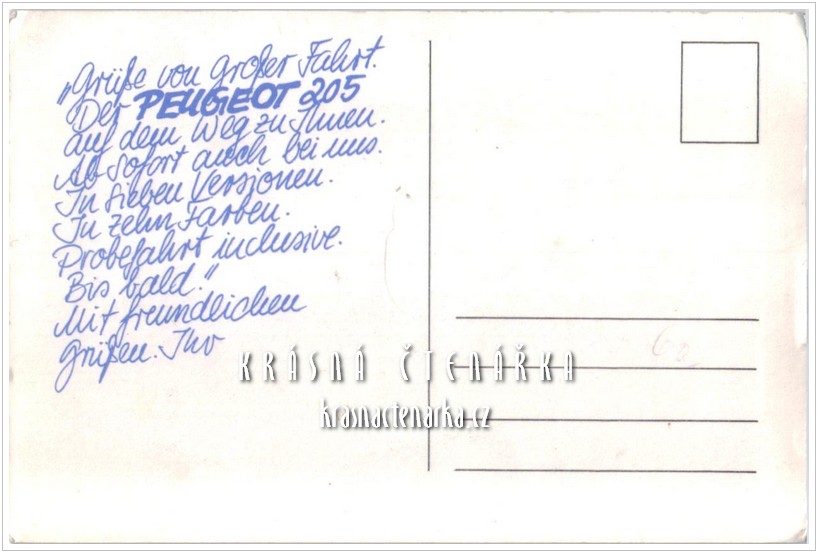 „Grüße von großer Fahrt.
Der PEUGEOT 205
auf dem Weg zu Ihnen.
Ab sofort auch bei uns.
In sieben Versionen.
In zehn Farben.
Probefahrt inclusive.
Bis bald.“
Mit freundlichen
Grüßen. Ihr
KRÁSNÁ ČTENÁŘKA
krasnactenarka.cz